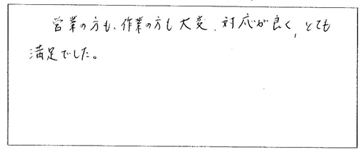 営業の方も、作業の方も大変、対応が良く、とても
満足でした。